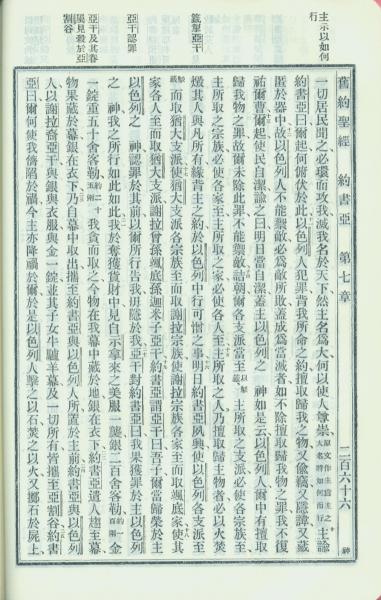 舊約聖經　約書亞　第七章　二百六十六　神
主示以如何行
籤掣亞干
亞干認罪
亞干及其眷屬見殺於亞割谷
一切居民聞之必環而攻我滅我名於天下然主名爲大何以使人尊崇原文作主爲主之大名將如何而行主諭
約書亞曰爾起何俯伏於此以色列人犯罪背我所命之約擅取歸我之物又偷竊又隱諱又藏
匿於器中故以色列人不能禦敵必爲敵所敗蓋成爲當滅者如不除擅取歸我物之罪我不復
祐爾曹爾起使民自潔諭之曰明日當自潔蓋主以色列之　神如是云以色列人爾中有擅取
歸我物之罪故爾未除此罪不能禦敵詰朝爾各支派當至以掣籤主所取之支派必使各宗族至
主所取之宗族必使各家至主所取之家必使各人至主所取之人乃擅取歸主物者必以火焚
燬其人與凡所有緣背主之約於以色列中行可憎之事明日約書亞夙興使以色列各支派至
掣籤而取猶大支派使猶大支派各宗族至而取謝拉宗族使謝拉宗族各家至而取颯底家使其
家各人至而取猶大支派謝拉曾孫颯底孫迦米子亞干約書亞謂亞干曰吾子爾當歸榮於主
以色列之　神認罪於其前以爾所行告我毋隱於我亞干對約書亞曰我果獲罪於主以色列
之　神我之所行如此如此我於奪獲貨財中見自示拿來之美服一襲銀二百舍客勒約一百兩金
一錠重五十舍客勒約二十五兩我貪而取之今物在我幕中藏於地銀在衣下約書亞遣人趨至幕
物果藏於幕銀在衣下乃自幕中取出攜至約書亞與以色列人所置於主前約書亞與以色列
人以謝拉裔亞干與銀與衣服與金一錠並其子女牛驢羊幕及一切所有皆攜至亞割谷約書
亞曰爾何使我儕陷於禍今主亦降禍於爾於是以色列人擊之以石焚之以火又擲石於屍上